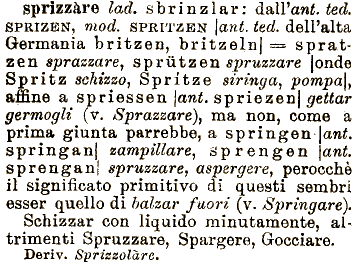 sprizzàre lad. sbrinzlar: dall'ant. ted.
SPRIZEN, mod. SPRITZEN |ant. ted. dell'alta
Germania britzen, britzeln| = sprat-
zen sprazzare, sprützen spruzzare |onde
Spritz schizzo, Spritze siringa, pompa|,
affine a spriessen |ant. spriezen| gettar
germogli (v. Sprazzare), ma non, come a
prima giunta parrebbe, a springen |ant.
springan| zampillare, sprengen |ant.
sprengan| spruzzare, aspergere, perocchè
il significato primitivo di questi sembri
esser quello di balzar fuori (v. Springare).
Schizzar con liquido minutamente, al-
trimenti Spruzzare, Spargere, Gocciare.
Deriv. Sprizzolàre.